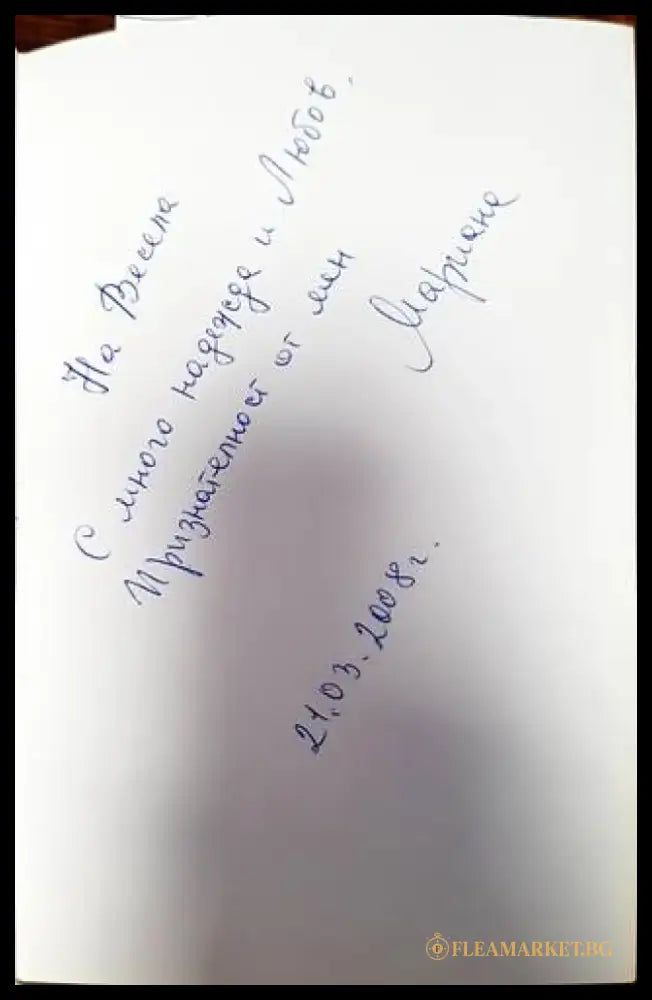 На Весела
С много надежда и Любов.
Признателност от мен
Мариана
21.03.2008 г.
FLEAMARKET.BG